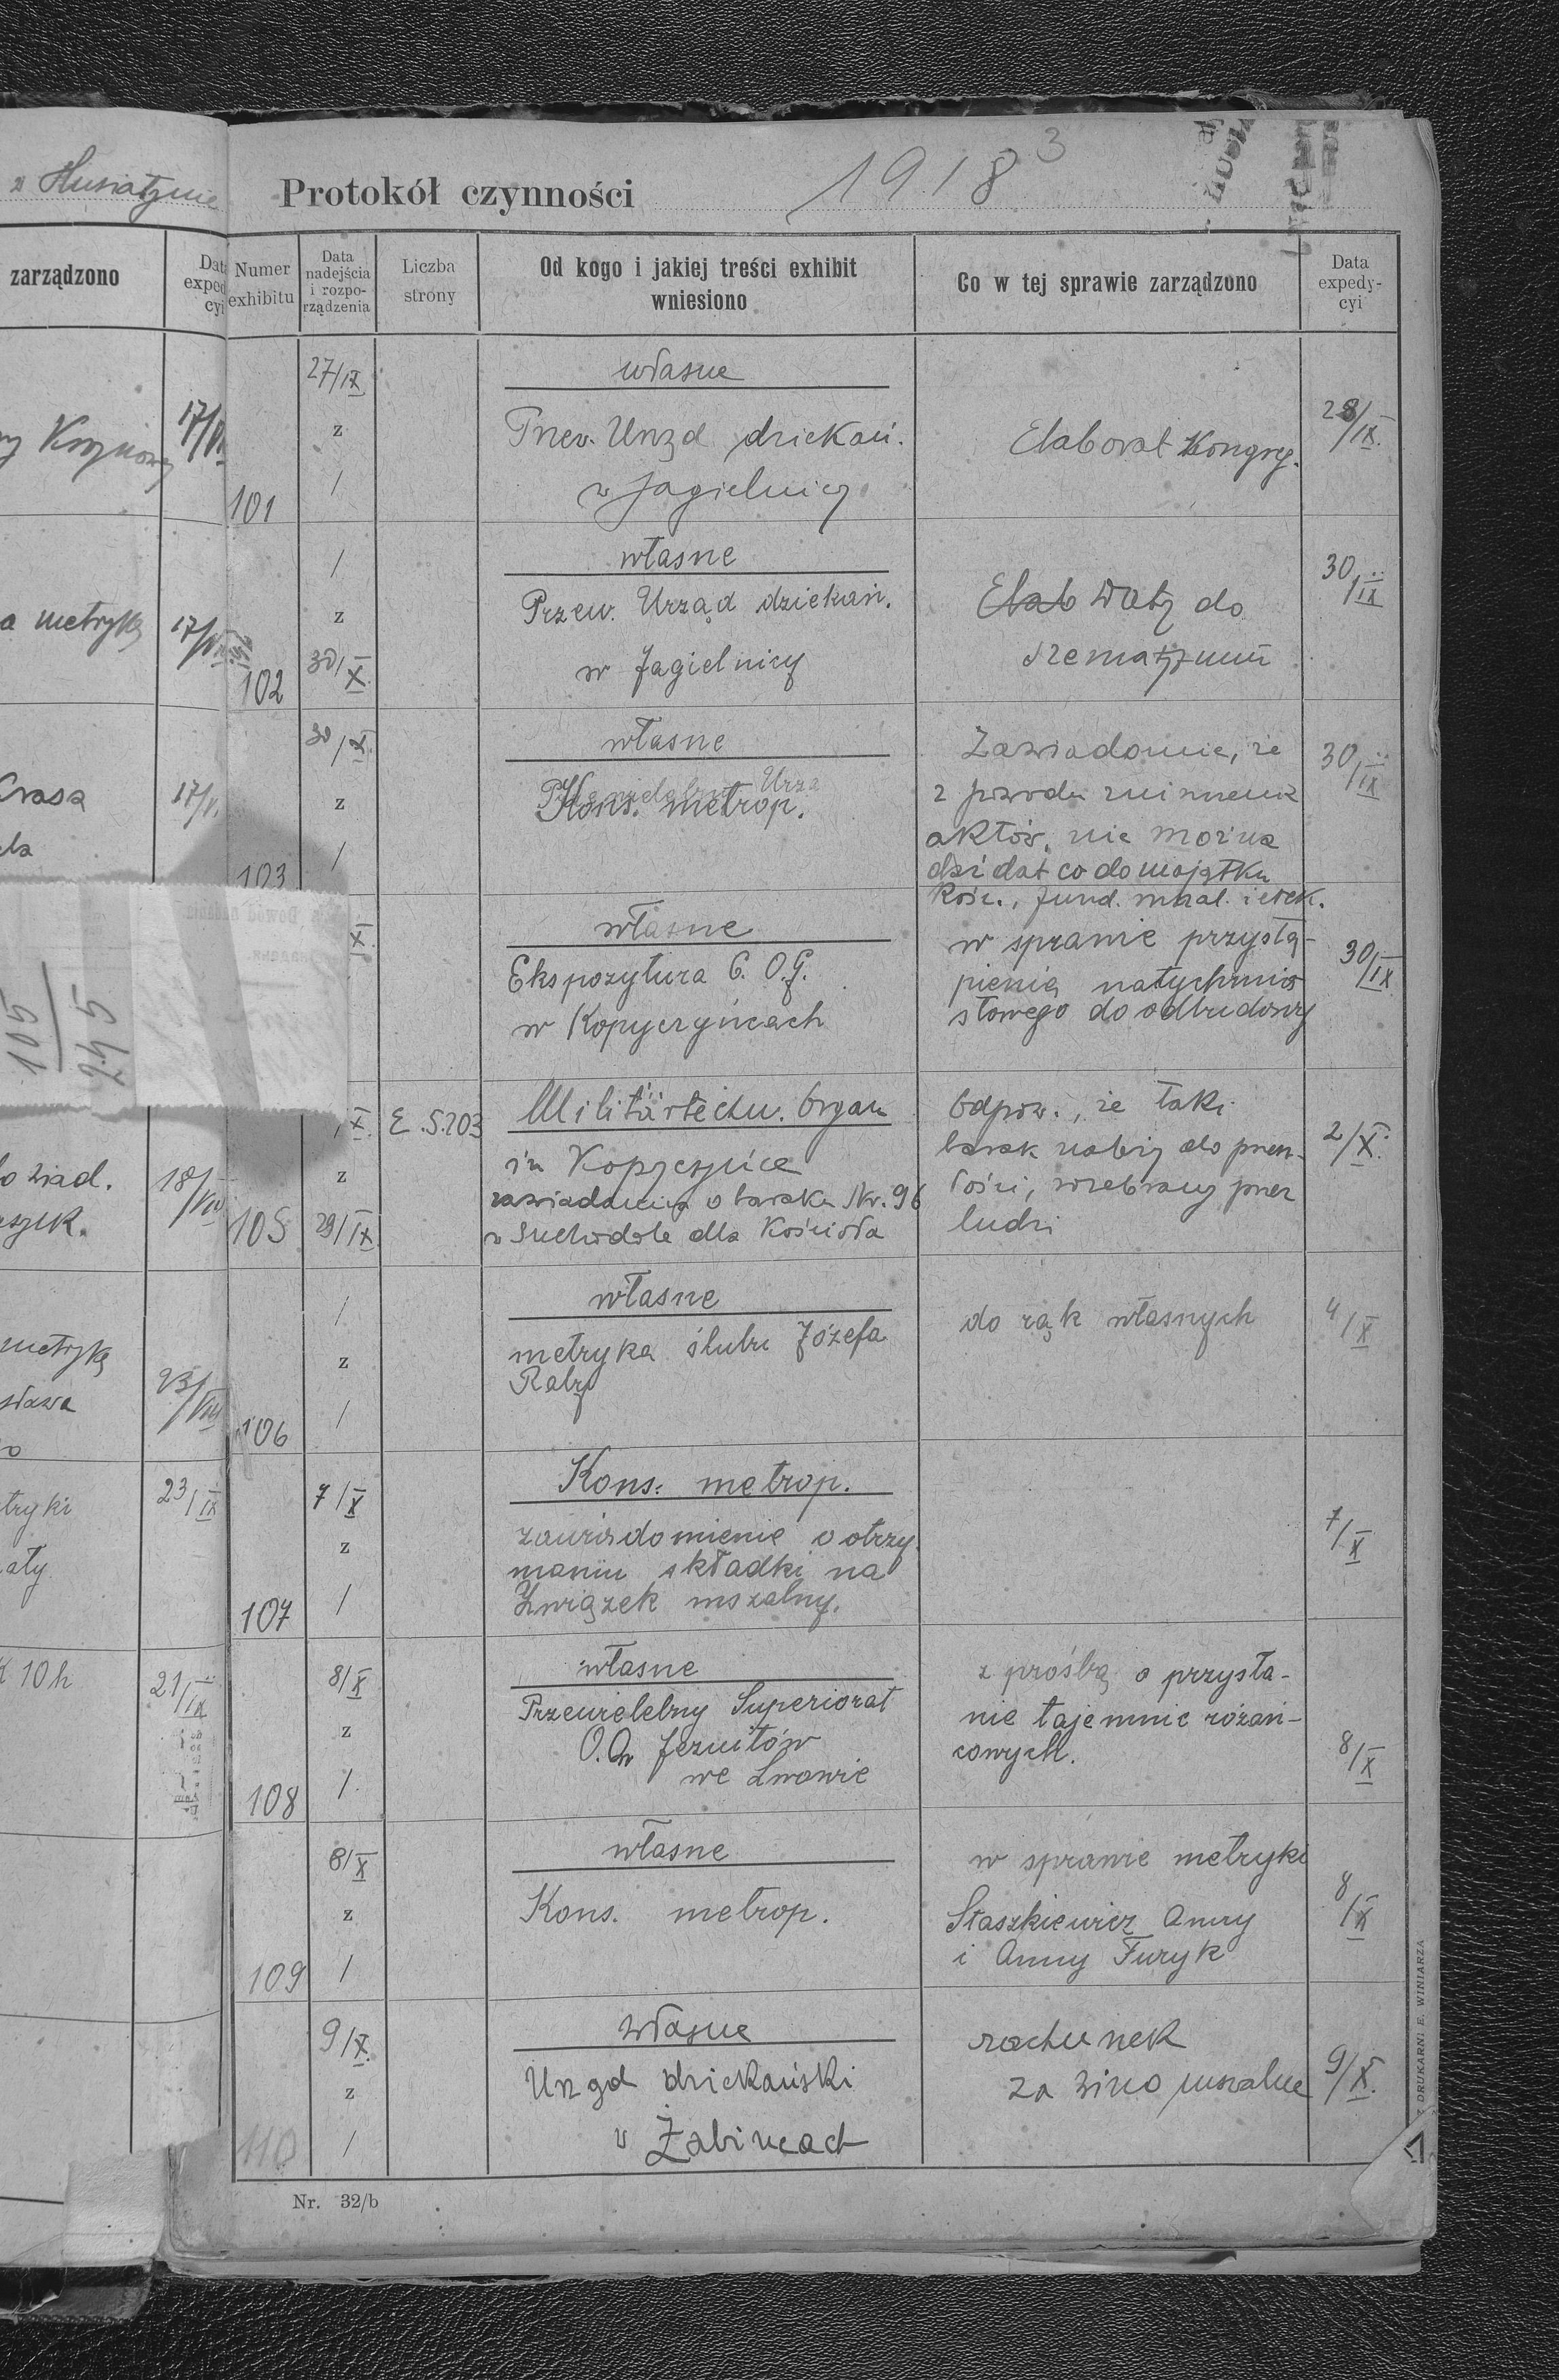 z Husiatynie
zarządzono
Data
exped
cyi
17/VII
a metrykę
17/VIII
Krasa
17/V
105
245
do wiad.
18/VIII
metrykę
sława
23/VIII
tryki
23/IX
aty
K 10 h
21/IX
3
Protokół czynności 1918
Numer exhibitu
Data nadejścia i rozporządzenia
Liczba strony
Od kogo i jakiej treści exhibit wniesiono
Co w tej sprawie zarządzono
Data expedycyi
27/IX
z
/
101
własne
Przew. Urząd dziekań.
w Jagielnicy
Elaborat Kongreg.
28/IX.
/
z
30/X
102
własne
Przew. Urząd dziekań.
w Jagielnicy
Elab Daty do
szematyzmu
30/IX
30/X
z
/
103
własne
Kons. metrop.
Zawiadomie, że
z powodu zniszczenia
aktów, nie można
dać dat co do majątku
Kośc., fund. mszal. i
30/IX
X.
własne
Ekspozytura C. O. G.
w Kopyczyńcach
w sprawie przystą-
pienia natychmia
stowego do odbudowy
30/IX
X.
z
29/IX
105
E.S.203
Militärtechn. Organ
in Kopyczyńce
zawiadamia o baraku Nr. 96
w Suchodole dla Kościoła
Odpow., że taki
barak należy do przesz-
łości, rozebrany przez
ludzi
2/X.
/
z
/
106
własne
metryka ślubu Józefa
Raby
do rąk własnych
4/X
7/X
z
/
107
Kons. metrop.
zawiadomienie o otrzy
maniu składki na
Związek mszalny.
7/X
8/X
z
/
108
własne
Przewielebny Superiorat
O.O. Jezuitów
we Lwowie
z prośbą o przysła-
nie tajemnic różań-
cowych.
8/X
8/X
z
/
109
własne
Kons. metrop.
w sprawie metryki
Staszkiewicz Anny
i Anny Furyk
8/X
9/X.
z
/
110
własne
Urząd dziekański
w Żabińcach
rachunek
za wino mszalne
9/X.
Nr. 32/b
Z DRUKARNI E. WINIARZA